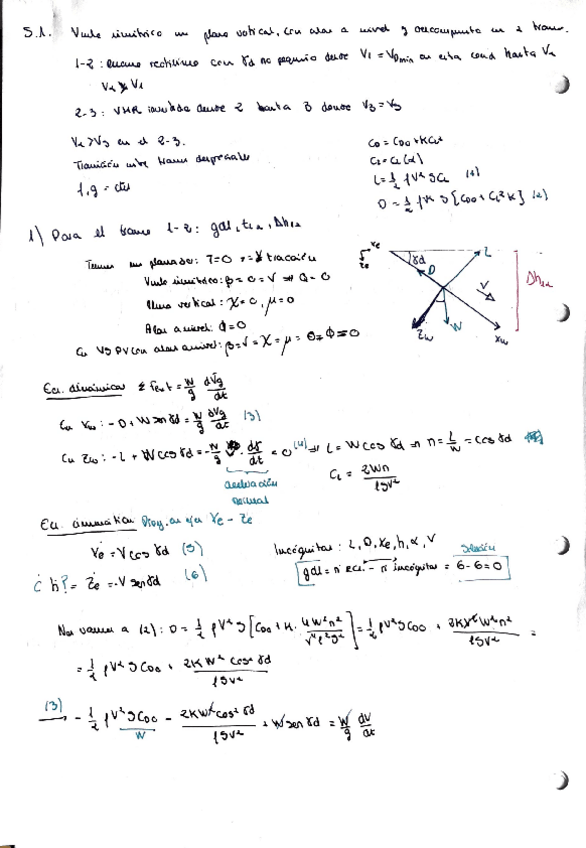 5.1. Vuelo simétrico en plano vertical, con alas a nivel y descompuesto en 2 tramos.
1-2: planeo rectilíneo con γd no pequeño desde V1 = VDmin en esta cond hasta V2
V2 > V1
2-3: VHR desde 2 hasta 3 donde V3 = VS
V2 > V3 en el 2-3.
Transición entre tramos despreciable
f, g = ctes
CD = CD0 + KCL²
CL = CL(α)
L = 1/2 ρV²SCL (1)
D = 1/2 ρV²S [CD0 + CL²K] (2)
1) Para el tramo 1-2: gdl, t12, Δh12
Tenemos un planeador: T=0 → tracción
Vuelo simétrico: β = 0 = ν ⇒ Q = 0
Plano vertical: χ = 0, μ = 0
Alas a nivel: Φ = 0
xe
ze
γd
D
L
V
W
zw
xw
Δh12
Ec. dinámicas Σ Fext = W/g dVg/dt
En xw: -D + W sen γd = W/g dVg/dt (3)
En zw: -L + W cos γd = -W/g V · dγ/dt = 0 (4) ⇒ L = W cos γd ⇒ n = L/W = cos γd
aceleración
CL = 2Wn/ρSV²
Ec. cinemáticas xe - ze
ẋe = V cos γd (5)
¿ ḣ? = że = -V sen γd (6)
Incógnitas: L, D, xe, h, α, V
Solución
gdl = nº ecs. - nº incógnitas = 6 - 6 = 0
Nos vamos a (2): D = 1/2 ρV²S [CD0 + K · 4W²n²/V⁴ρ²S²] = 1/2 ρV²SCD0 + 2KW²n²/ρSV² =
= 1/2 ρV²SCD0 + 2KW² cos² γd/ρSV²
(3)
→ - 1/2 ρV²SCD0/W - 2KW²cos² γd/ρSV² + W sen γd = W/g dV/dt